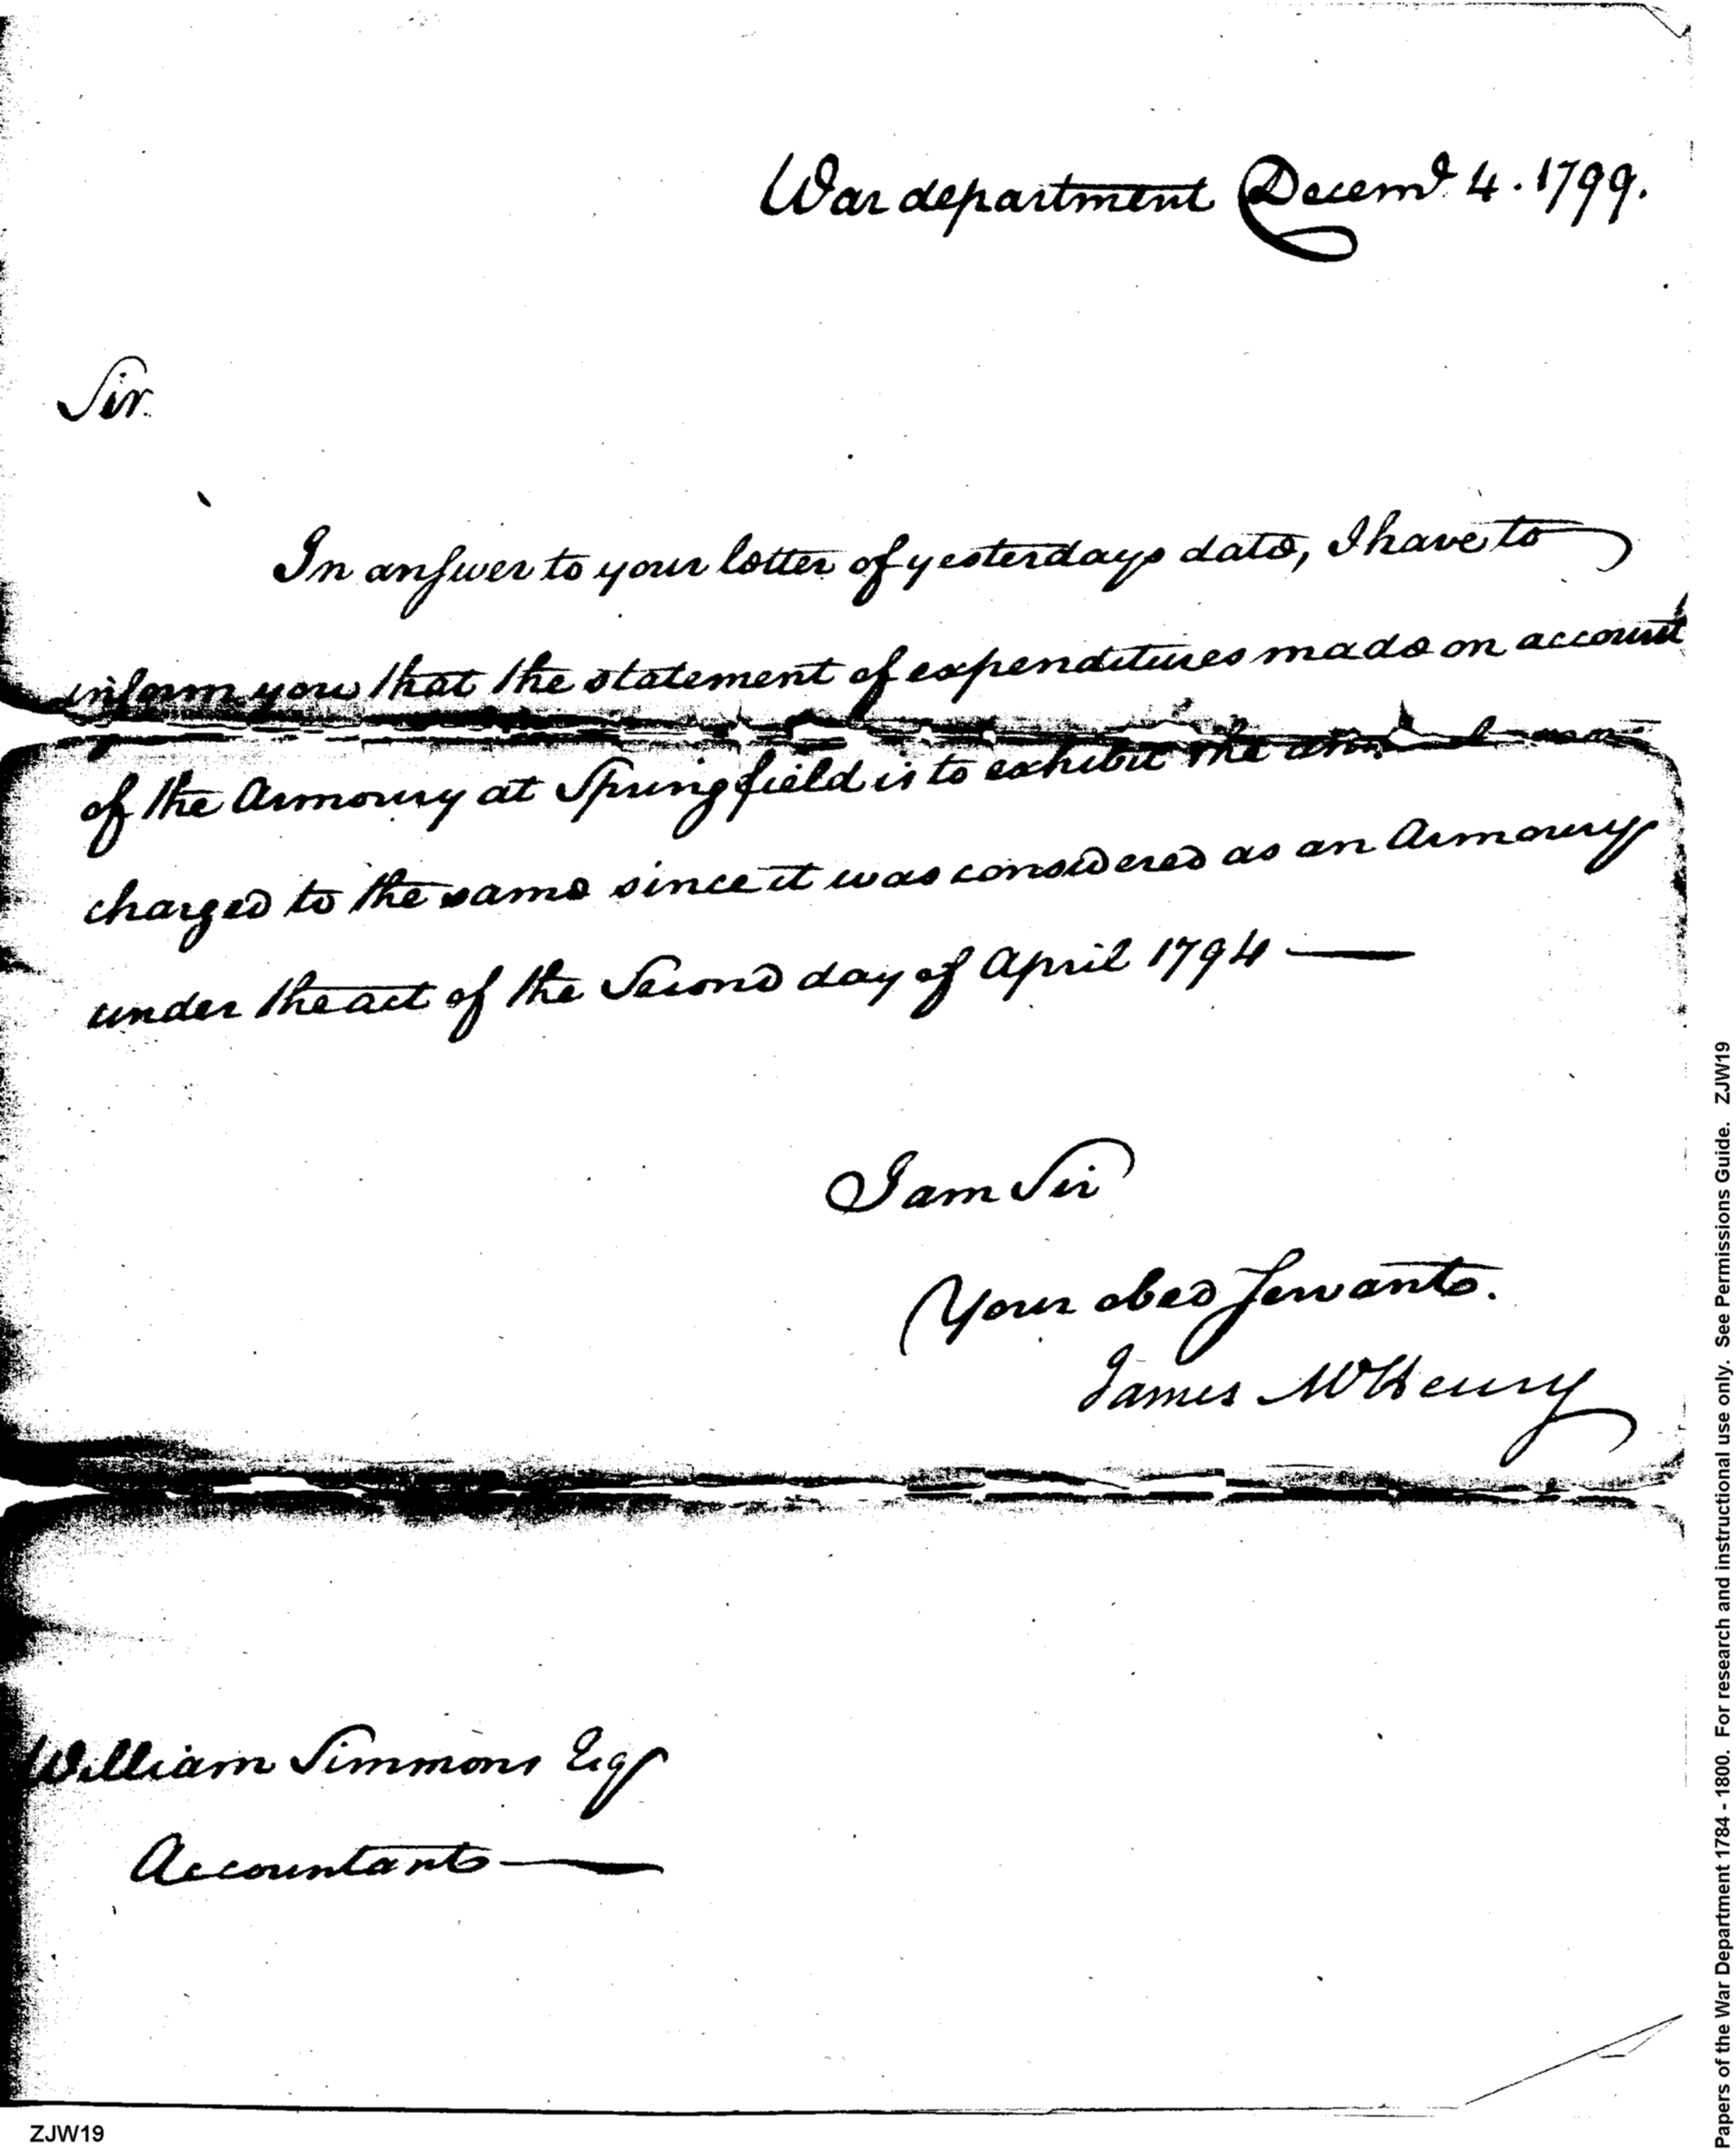 War department Decemr. 4. 1799.
Sir.
In answer to your letter of yesterdays date, I have to
inform you that the statement of expenditures made on account
of the Armoury at Springfield is to exhibit the
charged to the same since it was considered as an Armoury
under the act of the Second day of April 1794 —
I am Sir
Your obed Servant.
James McHenry
William Simmons Esqr
Accountant —
ZJW19
Papers of the War Department 1784 - 1800. For research and instructional use only. See Permissions Guide. ZJW19